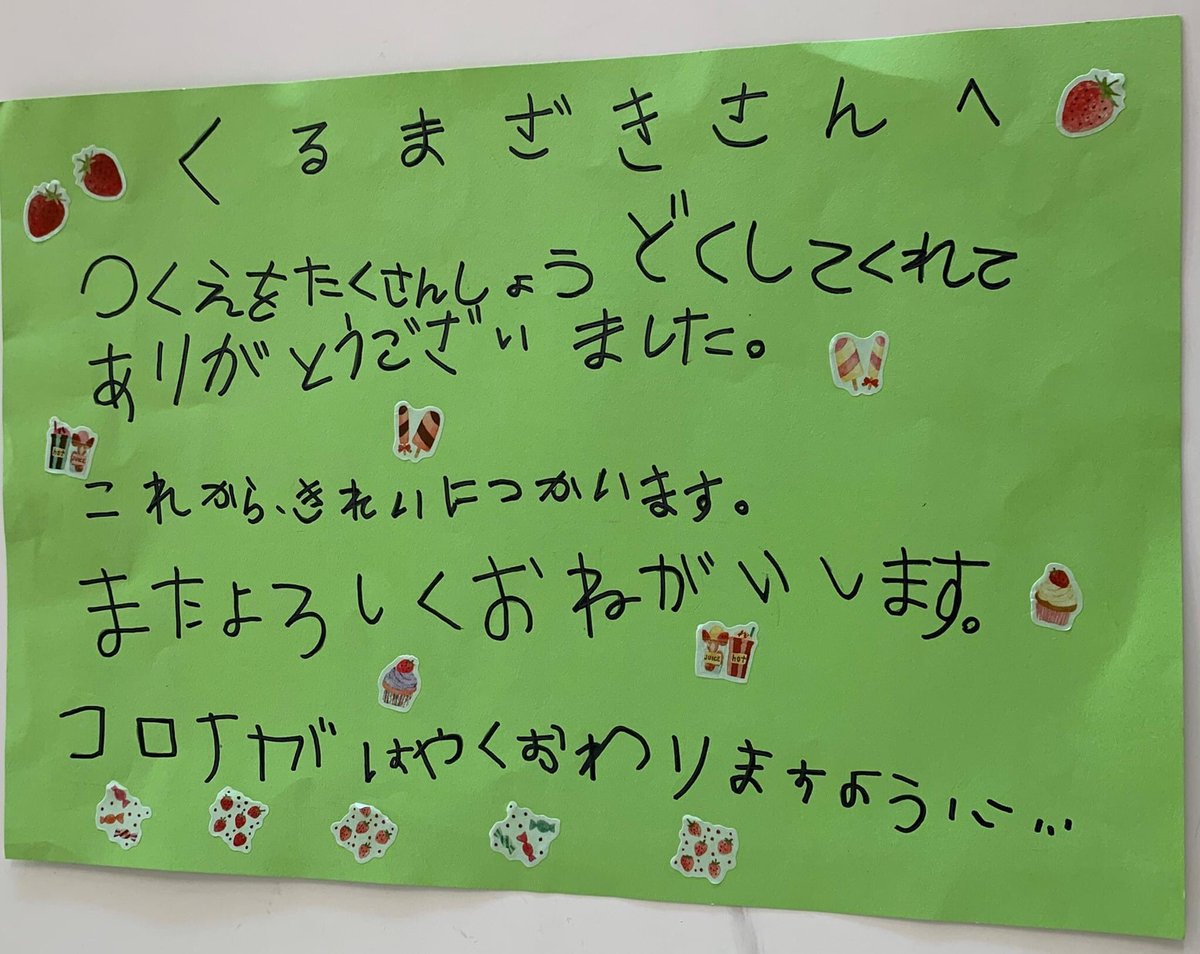 くるまざきさんへ
つくえをたくさんしょうどくしてくれて
ありがとうございました。
これから、きれいにつかいます。
またよろしくおねがいします。
コロナがはやくおわりますように…